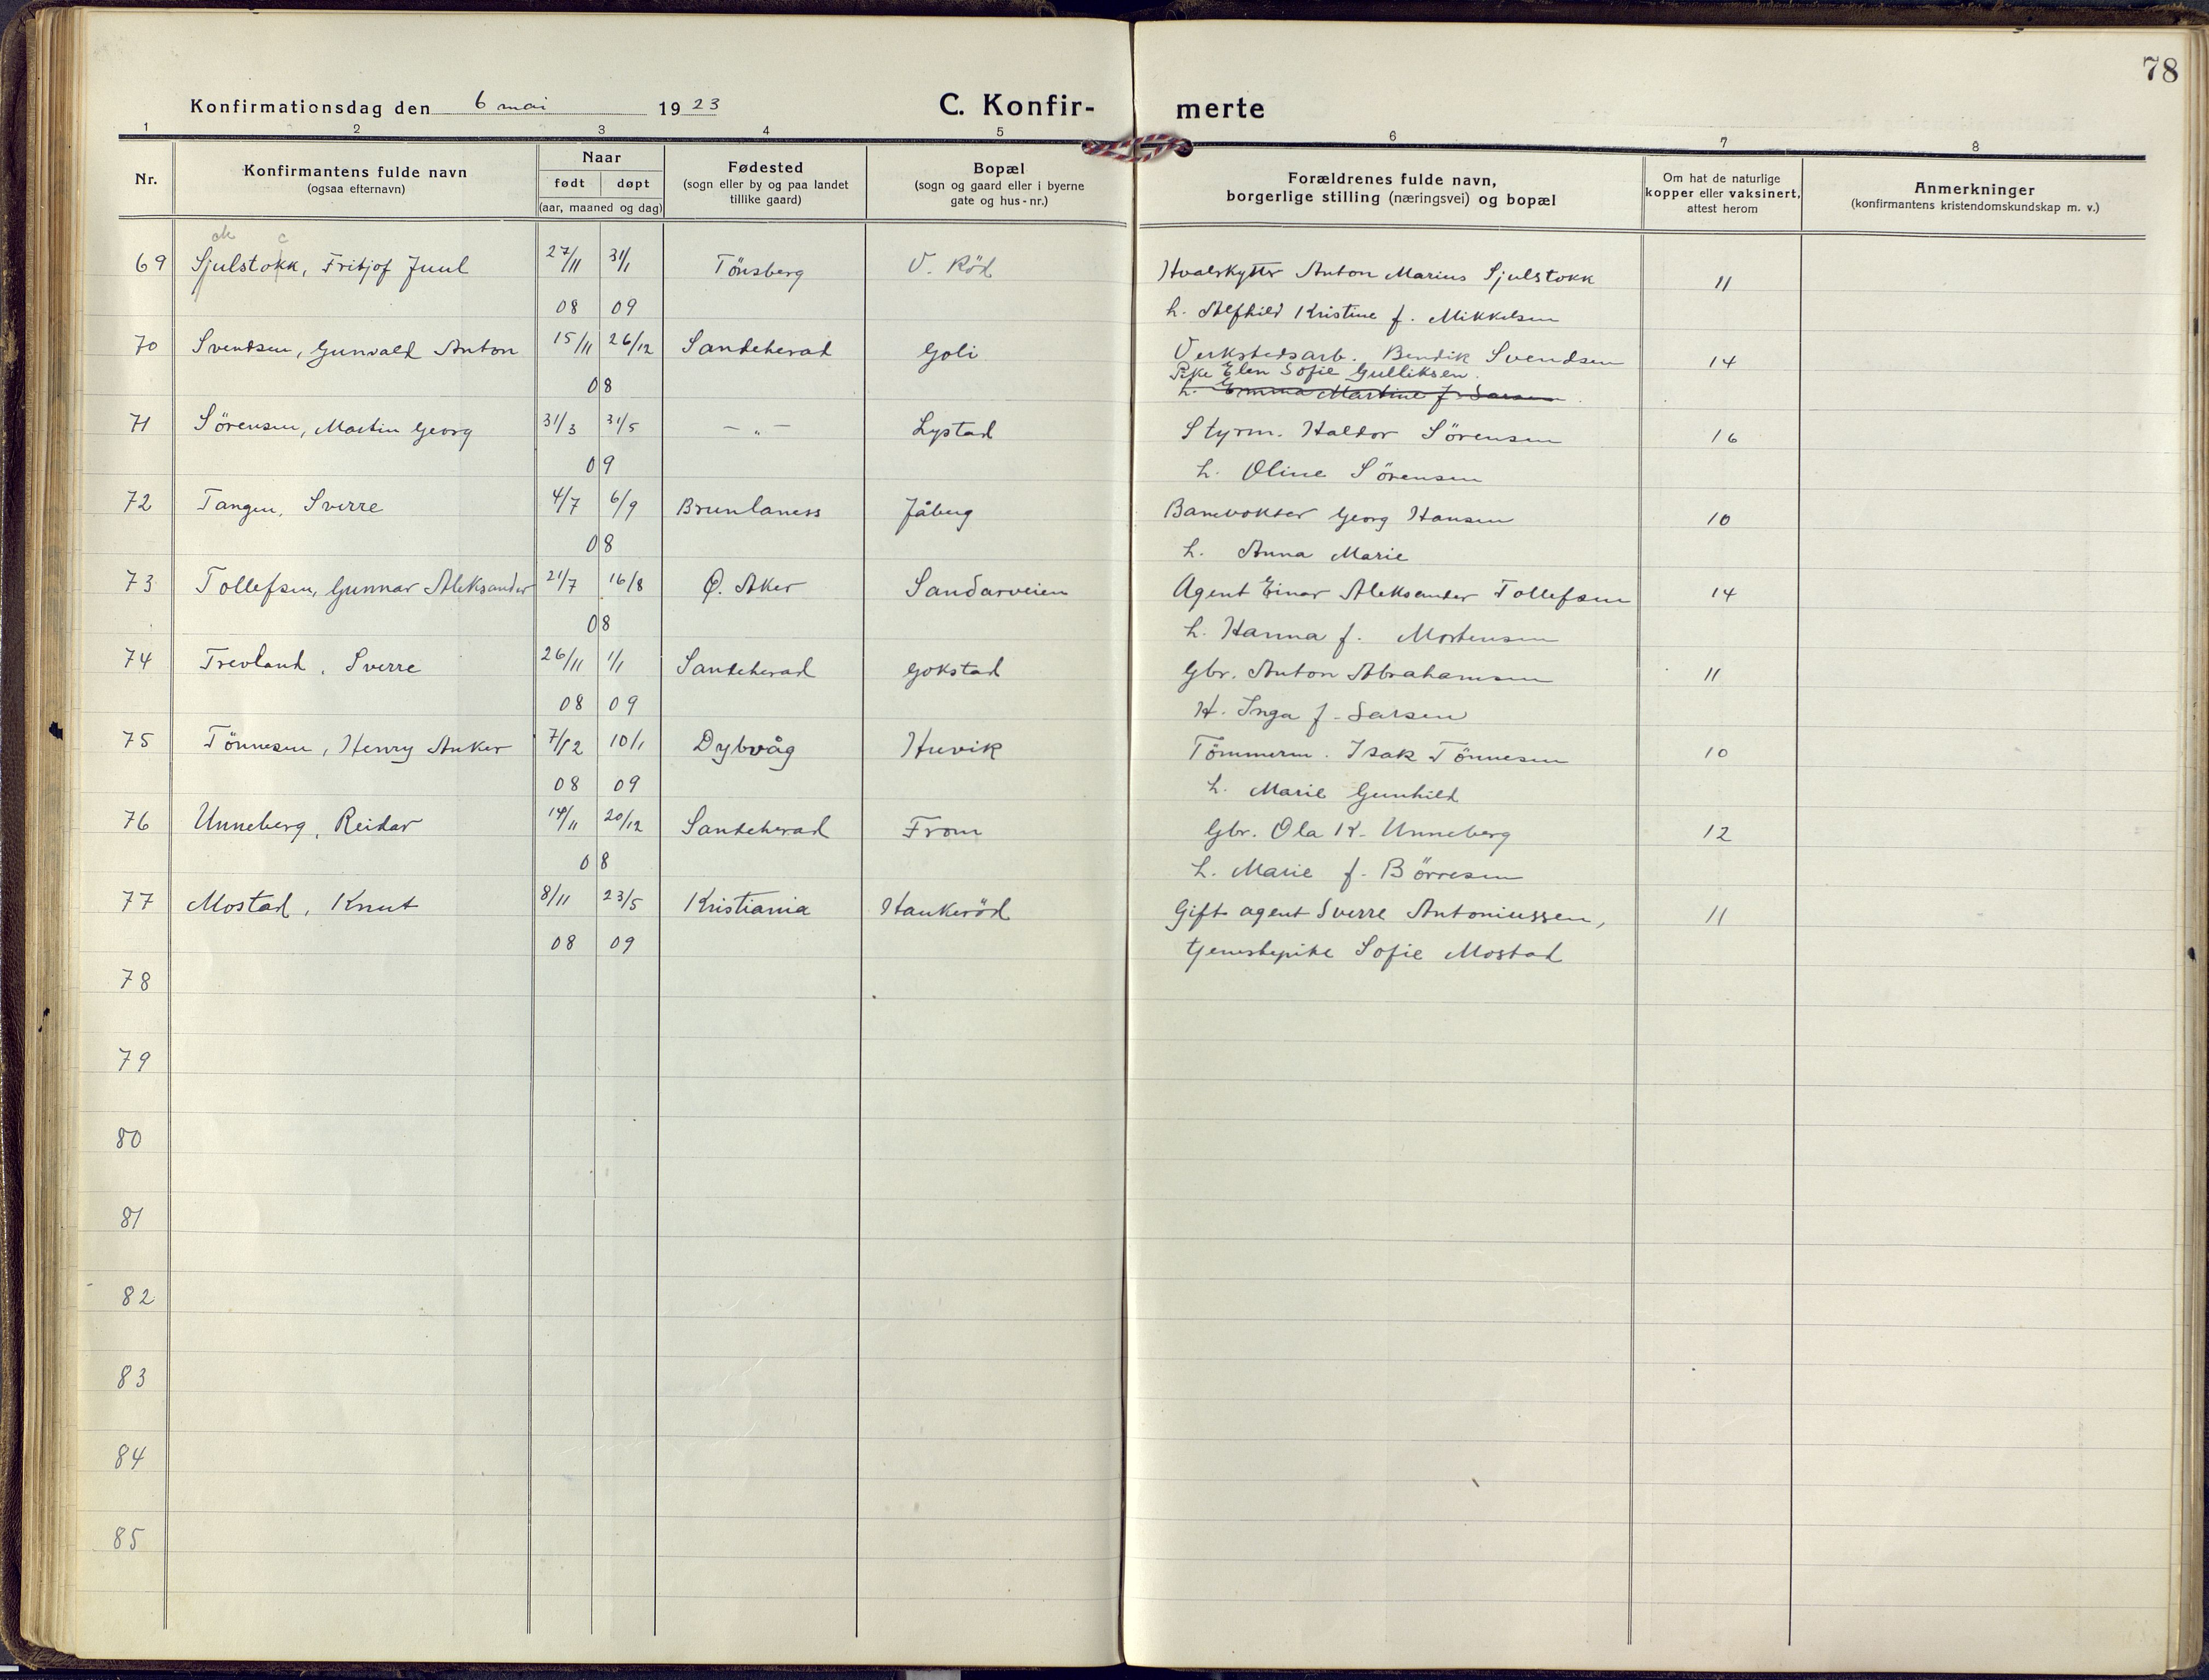 78
Konfirmationsdag den 6 mai 1923
C. Konfir- merte
1 2 3 4 5 6 7 8
Nr.
Konfirmantens fulde navn
(ogsaa efternavn)
Naar
født døpt
(aar, maaned og dag)
Fødested
(sogn eller by og paa landet
tillike gaard)
Bopæl
(sogn og gaard eller i byerne
gate og hus-nr.)
Forældrenes fulde navn,
borgerlige stilling (næringsvei) og bopæl
Om hat de naturlige
kopper eller vaksinert,
attest herom
Anmerkninger
(konfirmantens kristendomskundskap m. v.)
c
69 Sjulstokk, Fritjof Juul 27/11 31/1 Tönsberg V. Röd Hvalskytter Anton Marius Sjulstokk 11
08 09 h. Alfhild Kristine f. Mikkelsen
70 Svendsen, Gunvald Anton 15/11 26/12 Sandeherad Goli Verkstedsarb. Bendik Svendsen 14
Pike Elen Sofie Gulliksen.
08 h. Emma Martine f. Larsen
71 Sörensen, Martin Georg 31/3 31/5 — „ — Lystad Styrm. Haldor Sörensen 16
09 h. Oline Sörensen
72 Tangen, Sverre 4/7 6/9 Brunlaness Jåberg Banevokter Georg Hansen 10
08 h. Anna Marie
73 Tollefsen, Gunnar Aleksander 21/7 16/8 Ø. Aker Sandarveien Agent Einar Aleksander Tollefsen 14
08 h. Hanna f. Mortensen
74 Trevland, Sverre 26/11 1/1 Sandeherad Gokstad Gbr. Anton Abrahamsen 11
08 09 H. Inga f. Larsen
75 Tönnesen, Henry Anker 7/12 10/1 Dybvåg Huvik Tömmerm. Isak Tönnesen 10
08 09 h. Marie Gunhild
76 Unneberg, Reidar 14/11 20/12 Sandeherad From Gbr. Ola K. Unneberg 12
08 h. Marie f. Börresen
77 Mostad, Knut 8/11 23/5 Kristiania Haukeröd Gift agent Sverre Antoniussen, 11
08 09 tjenestepike Sofie Mostad
78
79
80
81
82
83
84
85